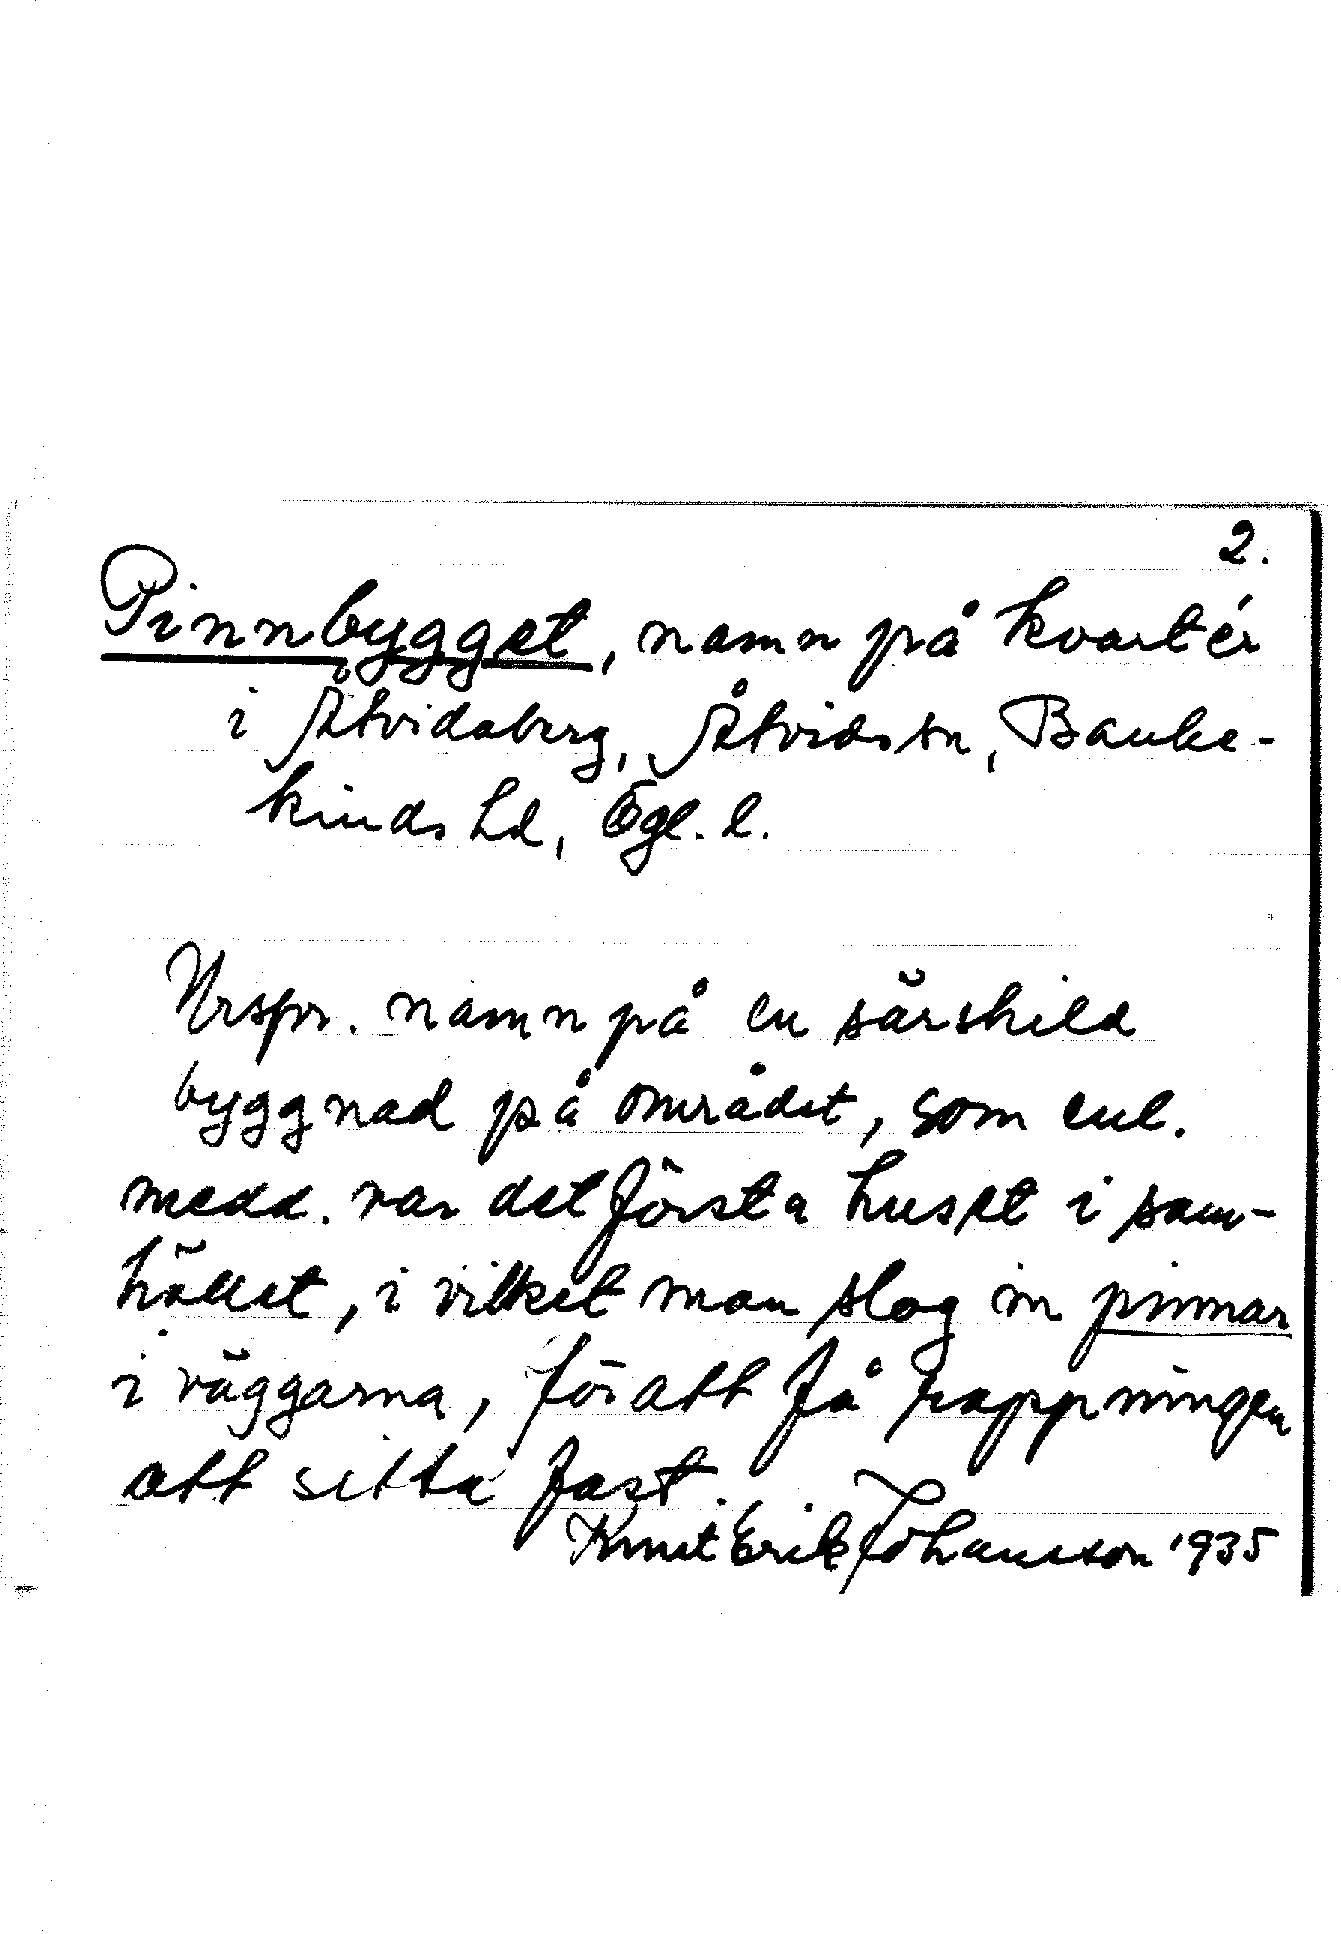 2.
Pinnbygget, namn på kvartér
i Åtvidaberg, Åtvids sn, Banke-
kinds hd, Ögl. l.
Urspr. namn på en särskild
byggnad på området, som enl.
medd. var det första huset i sam-
hället, i vilket man slog in pinnar
i väggarna, för att få rappningen
att sitta fast.
Knut Erik Johansson 1935